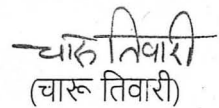 चारू तिवारी
(चारू तिवारी)